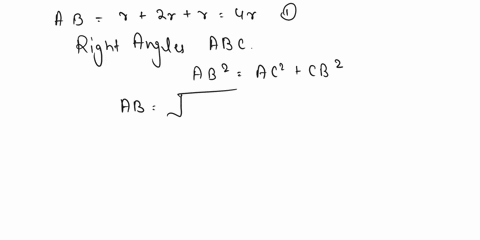 AB = r + 2r + r = 4r ①
Right Angles ABC.
AB² = AC² + CB²
AB = √